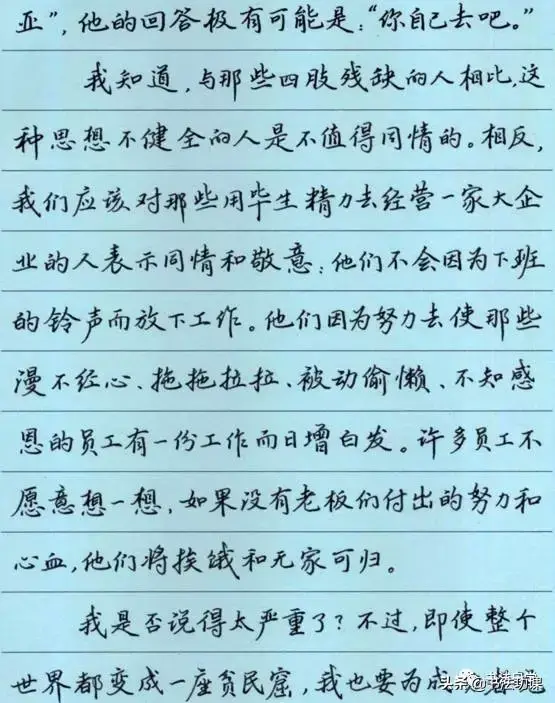 亚”，他的回答极有可能是：“你自己去吧。”
我知道，与那些四肢残缺的人相比，这
种思想不健全的人是不值得同情的。相反，
我们应该对那些用毕生精力去经营一家大企
业的人表示同情和敬意：他们不会因为下班
的铃声而放下工作。他们因为努力去使那些
漫不经心、拖拖拉拉、被动偷懒、不知感
恩的员工有一份工作而日增白发。许多员工不
愿意想一想，如果没有老板们付出的努力和
心血，他们将挨饿和无家可归。
我是否说得太严重了？不过，即使整个
世界都变成一座贫民窟，我也要为成
头条@书法幼课